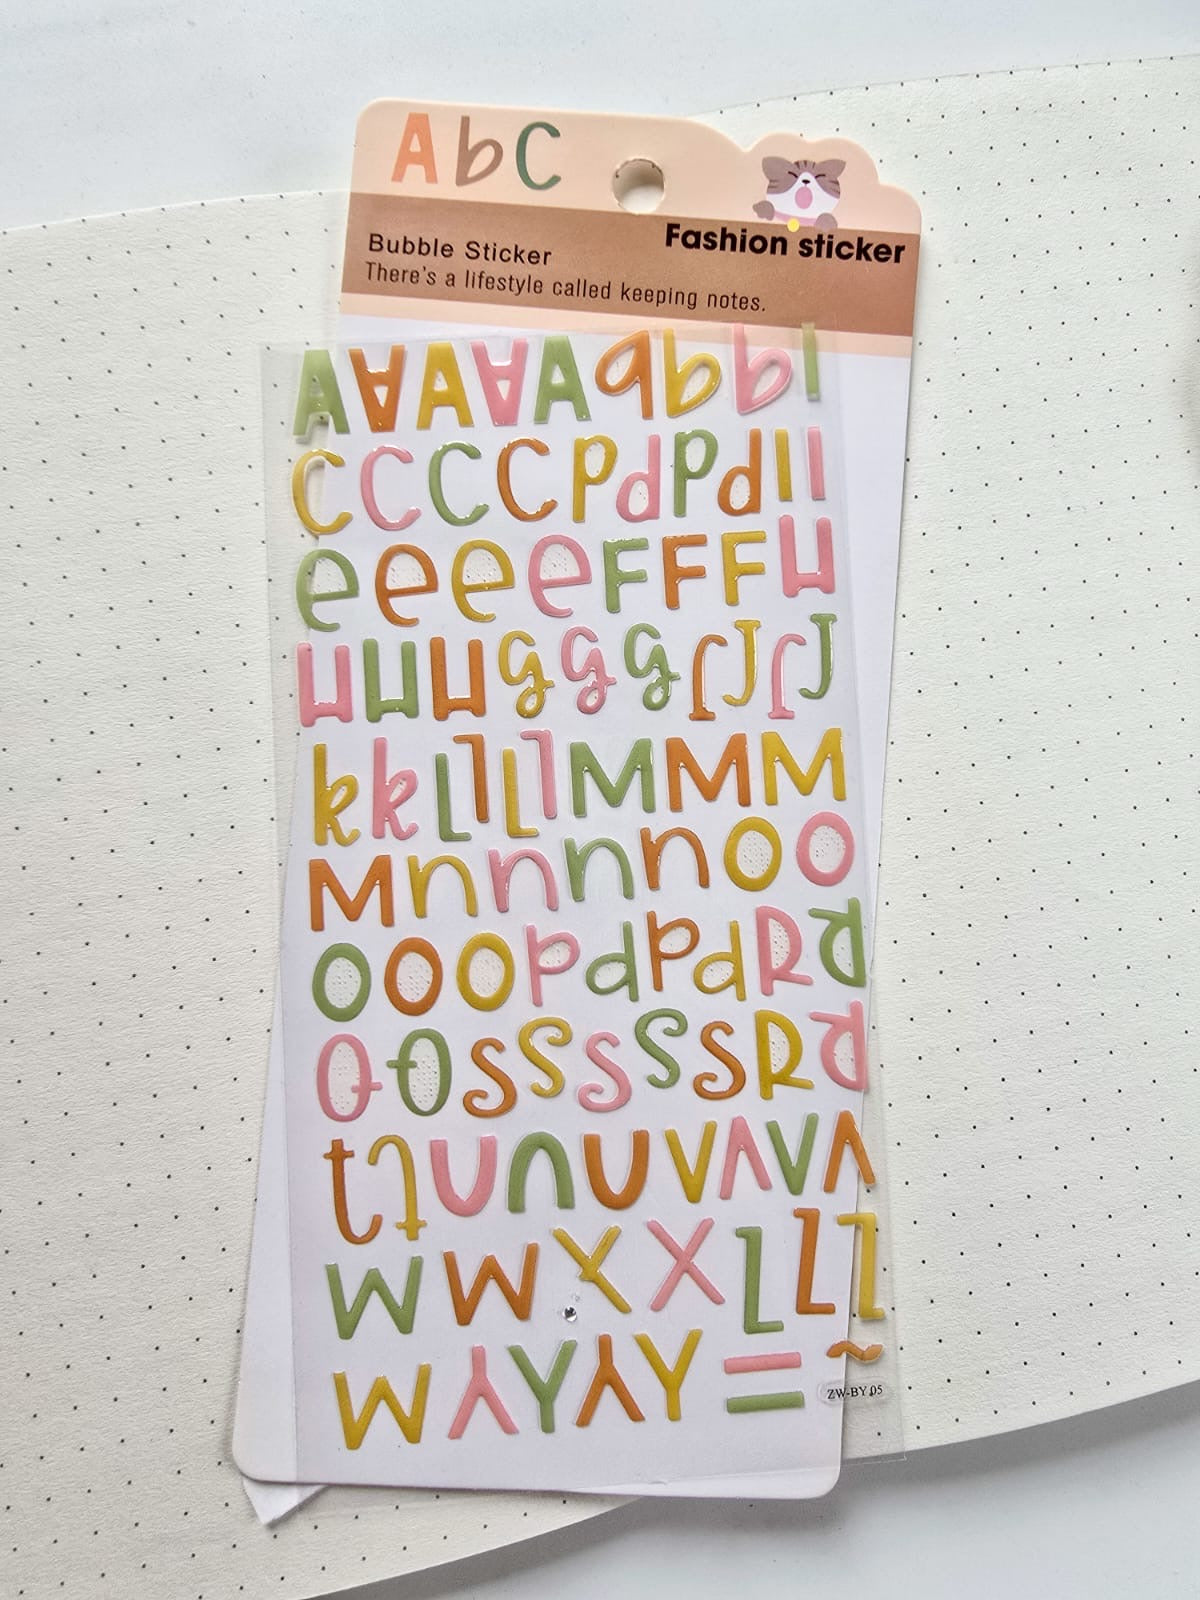 AbC
Fashion sticker
Bubble Sticker
There's a lifestyle called keeping notes.
A A A A A a b b I
C C C C P d P d I I
e e e e F F F H
H H H g g g J J J J
k k L L L L M M M
M n n n n o o
o o o P d P d R R
Q Q s s s s s R R
t t u u u v v v v
W W X X L L L
W Y Y Y Y – – ~
ZW-BY 05